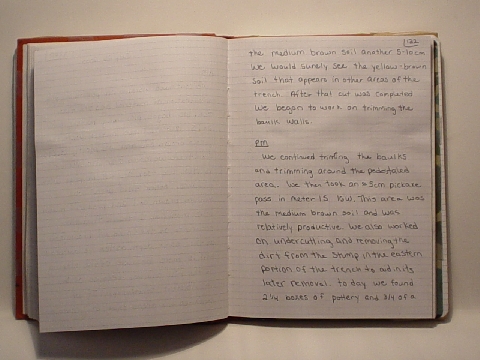 132
the medium brown soil another 5-10cm
we would surely see the yellow-brown
soil that appears in other areas of the
trench. After that cut was completed
we began to work on trimming the
baulk walls.
PM
We continued triming the baulks
and trimming around the pedestaled
area. We then took an ≈5cm pickaxe
pass in meter 15 10W. This area was
the medium brown soil and was
relatively productive. We also worked
on undercutting and removing the
dirt from the stump in the eastern
portion of the trench to aid in its
later removal. today we found
2 1/4 boxes of pottery and 3/4 of a